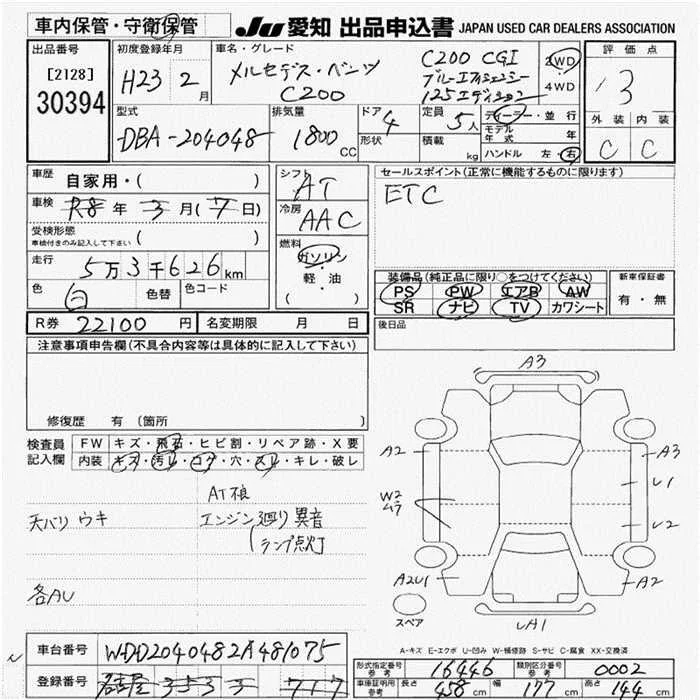 車内保管・守衛保管
JU 愛知 出品申込書 JAPAN USED CAR DEALERS ASSOCIATION
出品番号 [2128] 30394
初度登録年月 H23 2月
車名・グレード メルセデス・ベンツ C200
C200 CGI
ブルーエフィシェンシー
125エディション
2WD・4WD
評価点 3
型式 DBA-204048
排気量 1800CC
ドア 4
形状
定員 5人
積載 kg
ディーラー・並行
モデル年式 年
ハンドル 左・右
外装 内装
C C
車歴 自家用・( )
車検 R8年3月(7日)
受検形態
車検付きのみ記入して下さい ( )
走行 5万3千626km
色 白 色替 色コード
シフト AT
冷房 AAC
燃料 ガソリン・軽・油
( )
セールスポイント(正常に機能するものに限ります)
ETC
装備品(純正品に限り○をつけてください)
PS PW エアB AW
SR ナビ TV カワシート
新車保証書
有・無
R券 22100円 名変期限 月 日
後日品
注意事項申告欄(不具合内容等は具体的に記入して下さい)
修復歴 有 (箇所 )
検査員記入欄
FW キズ・飛石・ヒビ割・リペア跡・X要
内装 キズ・汚レ・コゲ・穴・スレ・キレ・破レ
AT狼
天バリ ウキ
エンジン廻り異音
ランプ点灯
各AU
A3
A2
A3
U1
W2
ムラ
U2
A2U1
A2
UA1
スペア
A-キズ E-エクボ U-凹み W-補修跡 S-サビ C-腐食 XX-交換済
車台番号 WDD2040482A481075
登録番号 名古屋
717
形式指定番号 参考 16446
類別区分番号 参考 0002
車庫証明用 参考 長さ 458cm 幅 177cm 高さ 144cm